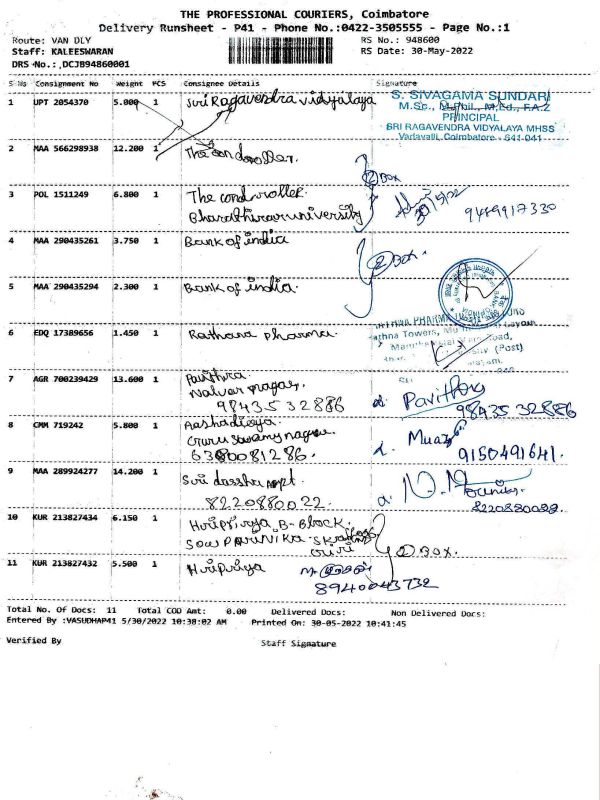 THE PROFESSIONAL COURIERS, Coimbatore
Delivery Runsheet - P41 - Phone No.:0422-3505555 - Page No.:1
Route: VAN DLY RS No.: 948600
Staff: KALEESWARAN RS Date: 30-May-2022
DRS No.: ,DCJB94860001
S No Consignment No Weight PCS Consignee Details Signature
1 UPT 2054370 5.000 1 Suri Ragavendra vidyalaya
S. SIVAGAMA SUNDARI
M.Sc., M.Phil., M.Ed., F.A.2
PRINCIPAL
SRI RAGAVENDRA VIDYALAYA MHSS
Vartavali, Coimbatore - 641 041
2 MAA 566298938 12.200 1 The condroller.
2 Box
3 POL 1511249 6.800 1 The condroller.
Bharathiraruniversity 30/5/22 9489917330
4 MAA 290435261 3.750 1 Bank of india
2 Box.
5 MAA 290435294 2.300 1 Bank of india.
6 EDQ 17389656 1.450 1 Rathana pharma.
7 AGR 700239429 13.600 1 Pavithra.
Nalvar nagar,
98435 32886 Pavithra
98435 32886
8 CMM 719242 5.800 1 Aashadivya
6380081286. 9150491641.
9 MAA 289924277 14.200 1 Suri dassha appt.
8220880022. 8220880022.
10 KUR 213827434 6.150 1 Hripriya B-Block.
2 Box.
11 KUR 213827432 5.500 1 Hripriya
8940043732
Total No. Of Docs: 11 Total COD Amt: 0.00 Delivered Docs: Non Delivered Docs:
Entered By :VASUDHAP41 5/30/2022 10:38:02 AM Printed On: 30-05-2022 10:41:45
Verified By Staff Signature